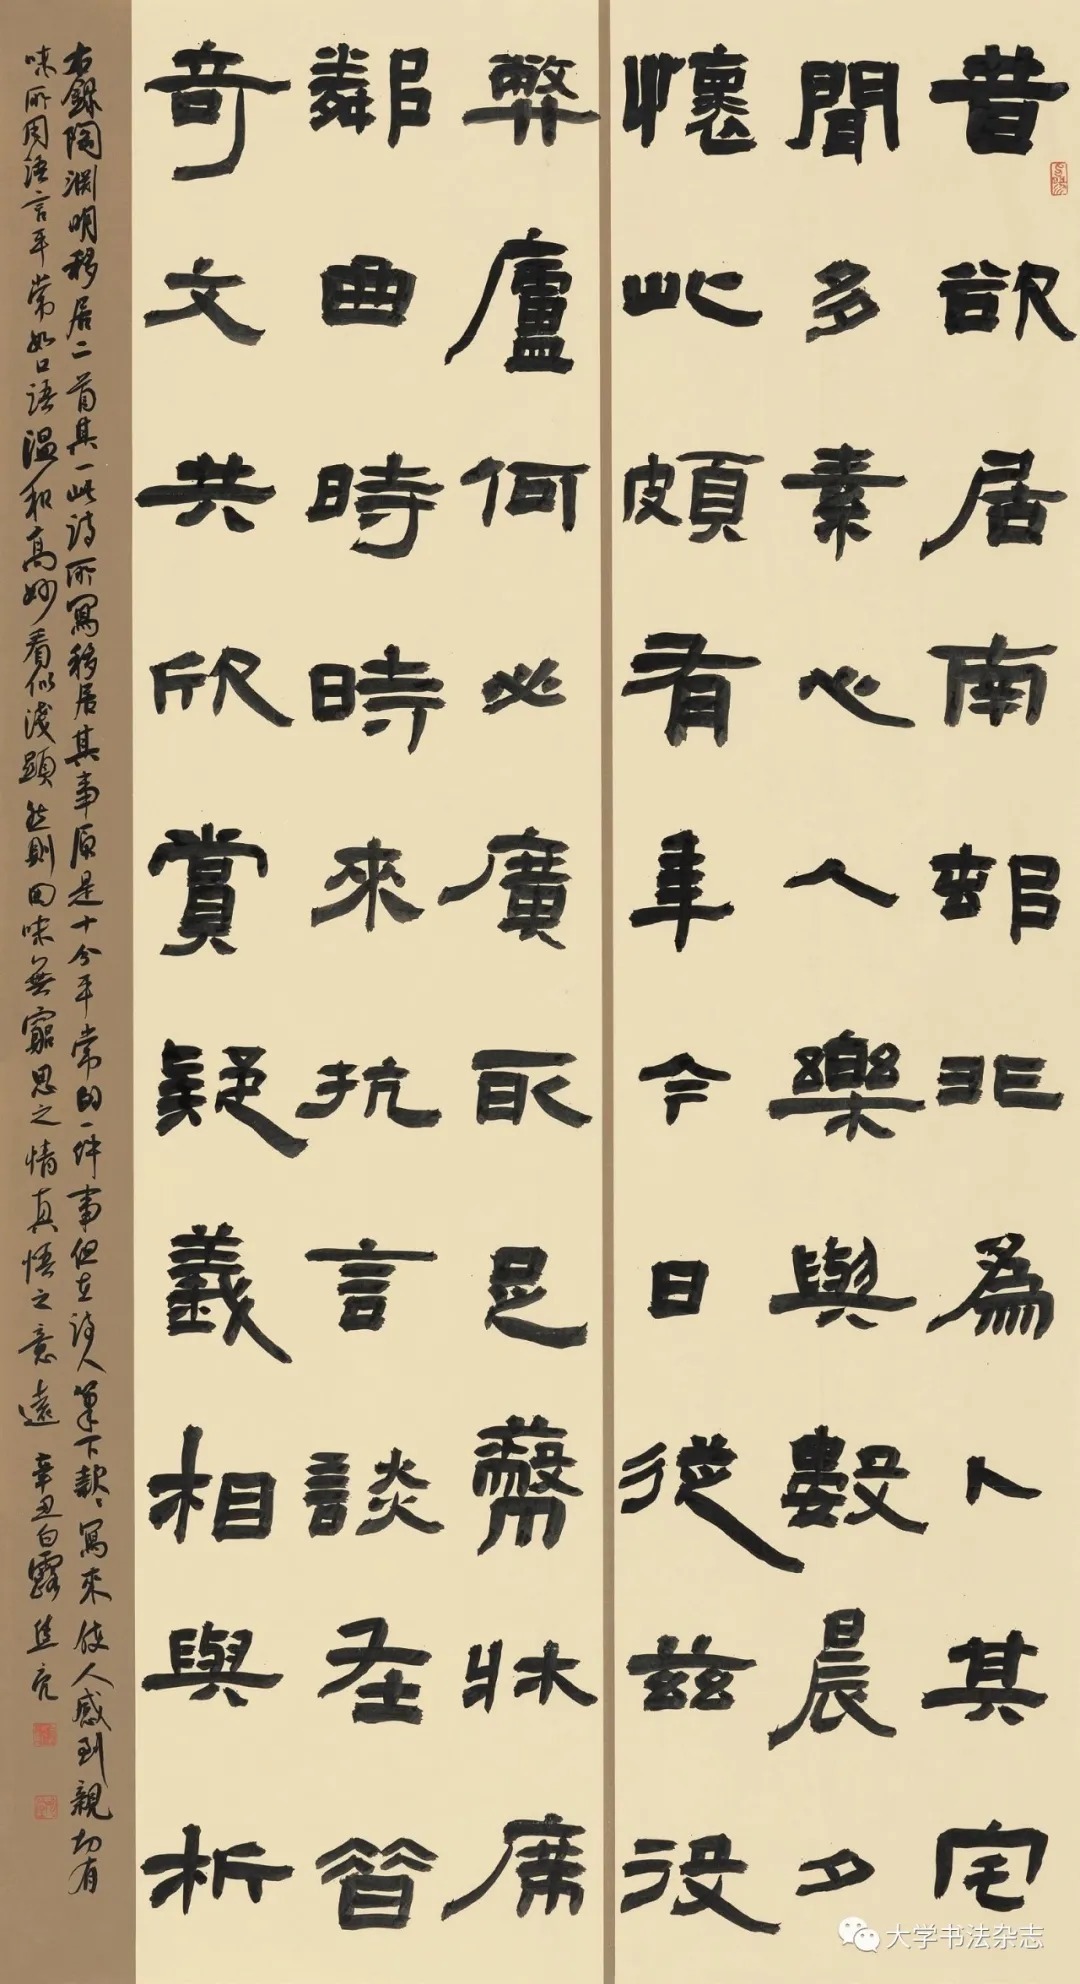 昔欲居南邨非爲卜其宅
聞多素心人樂與數晨夕
懷此頗有年今日從茲役
弊廬何必廣取足蔽牀席
鄰曲時時來抗言談在昔
奇文共欣賞疑義相與析
右錄陶淵明移居二首其一此詩所寫移居其事原是十分平常的一件事但在詩人筆下款款寫來使人感到親切有
味所用語言平常如口語温和高妙看似淺顯然則回味無窮思之情真悟之意遠 辛丑白露焦亮
大学书法杂志